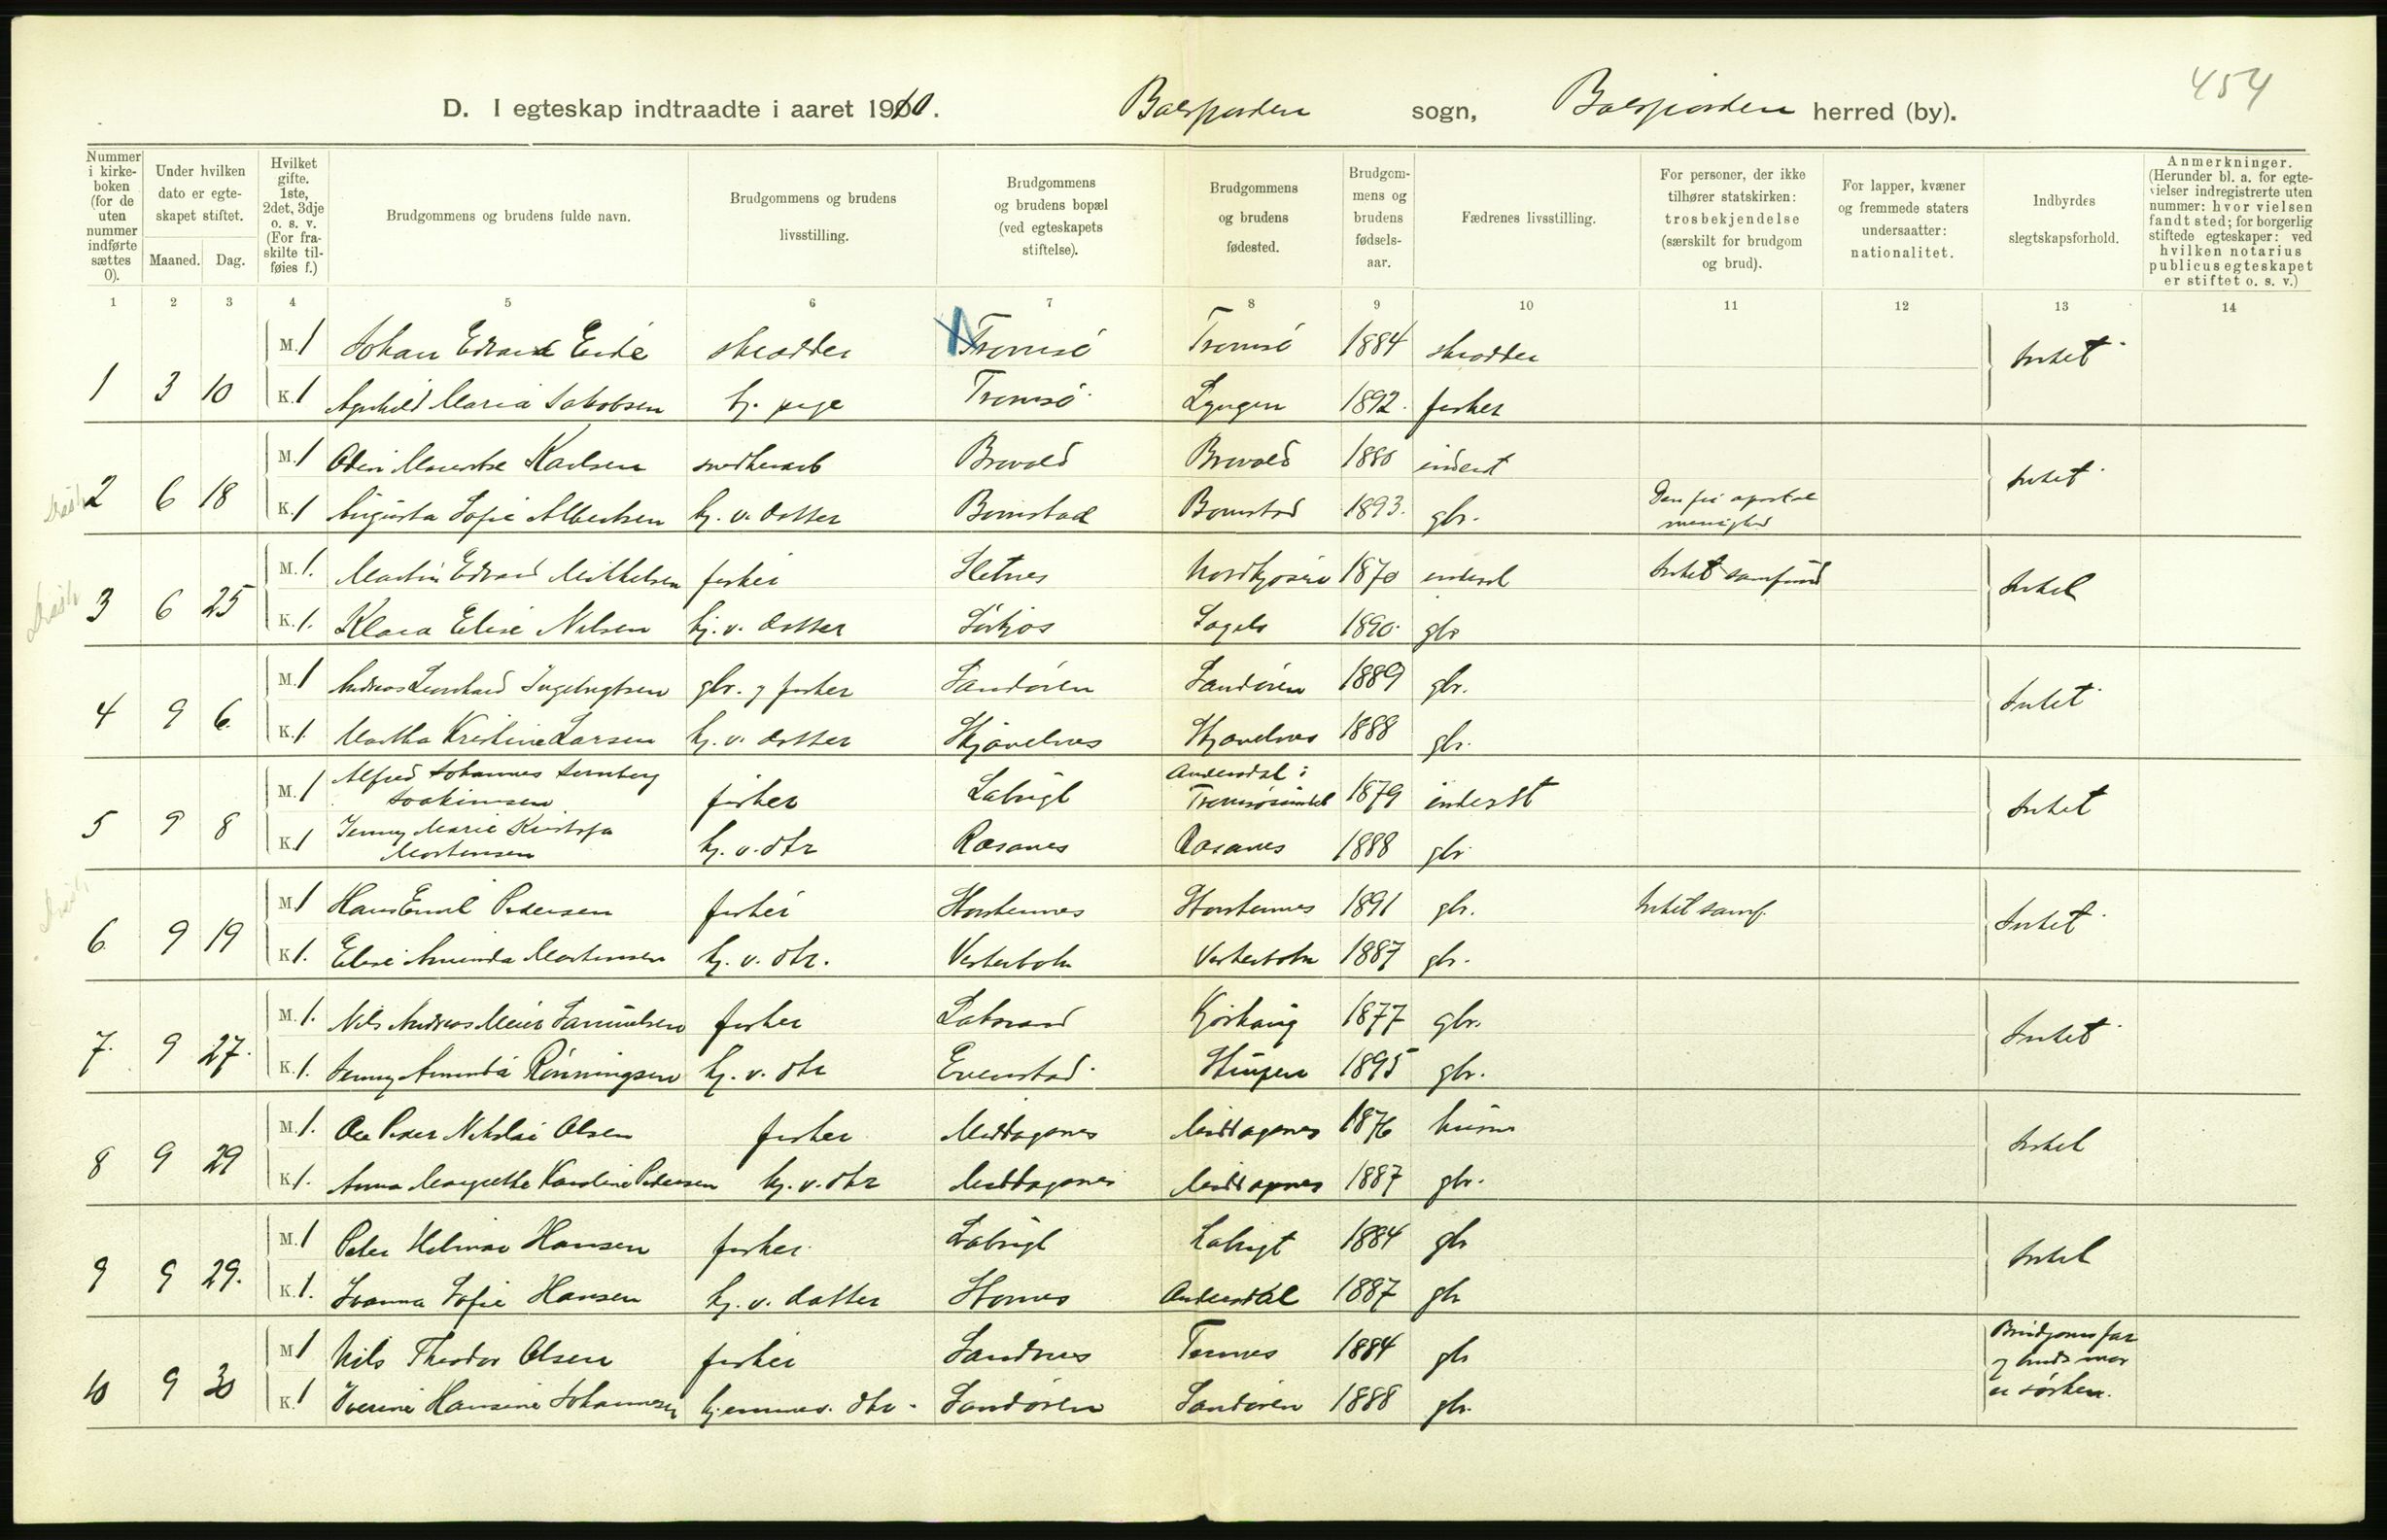 454
D. I egteskap indtraadte i aaret 1910. Balsfjorden sogn, Balsfjorden herred (by).
Nummer i kirkeboken (for de uten nummer indførte sættes 0).
Under hvilken dato er egteskapet stiftet.
Maaned. Dag.
Hvilket gifte. 1ste, 2det, 3dje o. s. v. (For fraskilte tilføies f.)
Brudgommens og brudens fulde navn.
Brudgommens og brudens livsstilling.
Brudgommens og brudens bopæl (ved egteskapets stiftelse).
Brudgommens og brudens fødested.
Brudgommens og brudens fødselsaar.
Fædrenes livsstilling.
For personer, der ikke tilhører statskirken: trosbekjendelse (særskilt for brudgom og brud).
For lapper, kvæner og fremmede staters undersaatter: nationalitet.
Indbyrdes slegtskapsforhold.
Anmerkninger. (Herunder bl. a. for egtevielser indregistrerte uten nummer: hvor vielsen fandt sted; for borgerlig stiftede egteskaper: ved hvilken notarius publicus egteskapet er stiftet o. s. v.)
1 2 3 4 5 6 7 8 9 10 11 12 13 14
M. 1 Johan Edvard Eide skrædder Tromsø Tromsø 1884 skrædder Intet
1 3 10 K. 1 Agnhild Maria Jakobsen tj. pige Tromsø Lyngen 1892. fisker
M. 1 Odin Karlsen snedkerarb Brevold 1880 inderst Intet
2 6 18 K. 1 Augusta Sofie Albertsen hj. v. datter Bomstad Bomstad 1893. gbr. Den fri apostol menighed
M. 1. Martin Edvard Mikkelsen fisker Sletnes Nordkjosen 1870 inderst Intet samfund Intet
3 6 25 K. 1. Klara Elise Nilsen hj. v. datter Sørkjos 1890. gbr
M. 1 Andreas Leonhard Ingebrigtsen gbr. og fisker Sandøren Sandøren 1889 gbr. Intet
4 9 6. K. 1. Martha Kristine Larsen hj. v. datter Skjævelnes Skjævelnes 1888 gbr.
M. 1 Alfred Johannes fisker Labugt Andersdal i Tromsøsundet 1879 inderst Intet
Joakimsen
5 9 8 K. 1 Jenny Marie hj. v. dtr Ræsnes 1888 gbr
Mortensen
M. 1 Hans Emil Pedersen fisker Storstennes Storstennes 1891 gbr. Intet samf. Intet
6 9 19 K. 1. Elise Aminda Mortensen hj. v. dtr. Vesterbotn Vesterbotn 1887 gbr.
M. 1. Nils Andreas Meier Samuelsen fisker 1877 gbr. Intet
7. 9 27. K. 1. Jenny Aminda Rønningsen hj. v. dtr Evenstad 1895 gbr.
M. 1. Ole Peder Nikolai Olsen fisker Middagsnes Middagsnes 1876 husm Intet
8 9 29 K. 1. Anna Margrethe Karoline Pedersen hj. v. dtr Middagsnes Middagsnes 1887 gbr.
M. 1 Peter Hilmar Hansen fisker Labugt Labugt 1884 gbr Intet
9 9 29. K. 1. Joanna Sofie Hansen hj. v. datter Andersdal 1887 gbr
M. 1 Nils Theodor Olsen fisker Sandnes 1884 gbr Brudgoms far
og bruds mor
er søsken.
10 9 30 K. 1 Iverine Hansine Johannesen hjemmev. dtr. Sandøren Sandøren 1888 gbr.